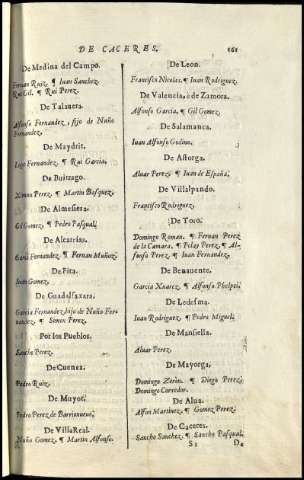 DE CACERES.
161
De Medina del Campo.
Fernan Ruiz. ¶ Iuan Sanchez.
Rui Gil. ¶ Rui Perez.
De Talauera.
Alfonso Fernandez, fijo de Nuño
Fernandez.
De Maydrit.
Fernandez. ¶ Rui Garcia.
De Buitrago.
Perez. ¶ Martin Basquez.
De Almesiera
Gil Gomez. ¶ Pedro Pasqual.
De Alcarias.
Garci Fernandez. ¶ Fernan Muñoz.
De Fita.
Gomez.
De Guadalfaxara.
Garcia Fernandez, hijo de Nuño Fer-
nandez. ¶ Simon Perez.
Por los Pueblos.
Sancho Perez.
De Cuenca.
Pedro Ruiz.
De Mayor.
Pedro Perez de Barrionueuo.
De Villa Real.
Nuño Gomez. ¶ Martin Alfonso.
De Leon.
Francisco Nicolas. ¶ Iuan Rodriguez.
De Valencia, o de Zamora.
Alfonso Garcia. ¶ Gil Gomez.
De Salamanca.
Iuan Alfonso Godino.
De Astorga.
Aluar Perez. ¶ Iuan de España.
De Villalpando.
Francisco Rodriguez.
De Toro.
Domingo Roman. ¶ Fernan Perez
de la Camara. ¶ Pelay Perez. ¶ Al-
fonso Perez. ¶ Iuan Fernandez.
De Benauente.
Garcia Xuarez. ¶ Alfonso Phelipe.
De Ledesma.
Iuan Rodriguez. ¶ Pedro Miguel.
De Mansiella.
Aluar Perez.
De Mayorga.
Domingo Zerin. ¶ Diego Perez.
Domingo Corredor.
De Alua.
Alfon Martinez. ¶ Gomez Perez.
De Caceres.
Sancho Sanchez. ¶ Sancho Pasqual.
De